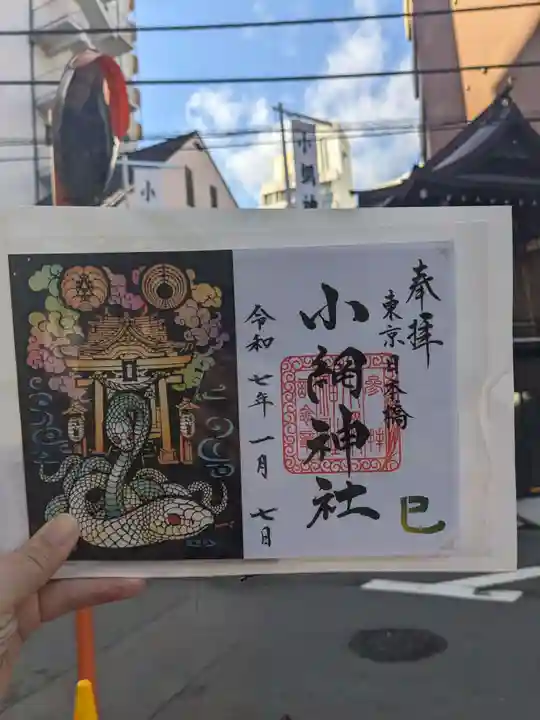 小網神
小
奉拝
東京日本橋
小網神社
巳
令和七年一月七日